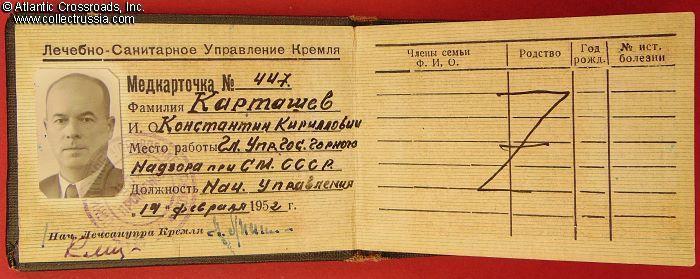 © Atlantic Crossroads, Inc.
www.collectrussia.com
Лечебно-Санитарное Управление Кремля
Медкарточка № 447
Фамилия Карташев
И. О. Константин Кириллович
Место работы Гл. Упр. гос. горного
Надзора при С.М. СССР.
Должность Нач. Управления
"19" февраля 1952 г.
Нач. Лечсанупра Кремля
Члены семьи
Ф. И. О.
Родство
Год
рожд.
№ ист.
болезни